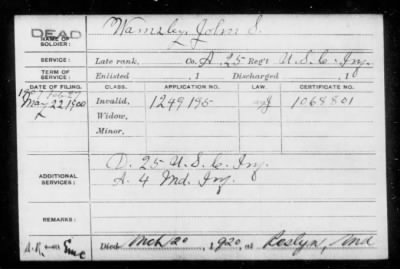 DEAD
NAME OF SOLDIER: Wamsley, John S.
SERVICE: Late rank, Co. A, 25 Reg't U.S.C. Inf.
TERM OF SERVICE: Enlisted , 1 Discharged , 1
DATE OF FILING. CLASS. APPLICATION NO. LAW. CERTIFICATE NO.
May 22 1900 Invalid, 1249195 1068801
Widow,
Minor,
D. 25 U.S.C. Inf.
ADDITIONAL SERVICES: A. 4 Md. Inf.
REMARKS:
Died Mch 20, 1920, at Roslyn, Md